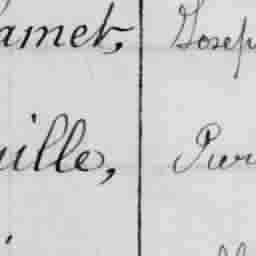 amet, Josep
ille, Pier